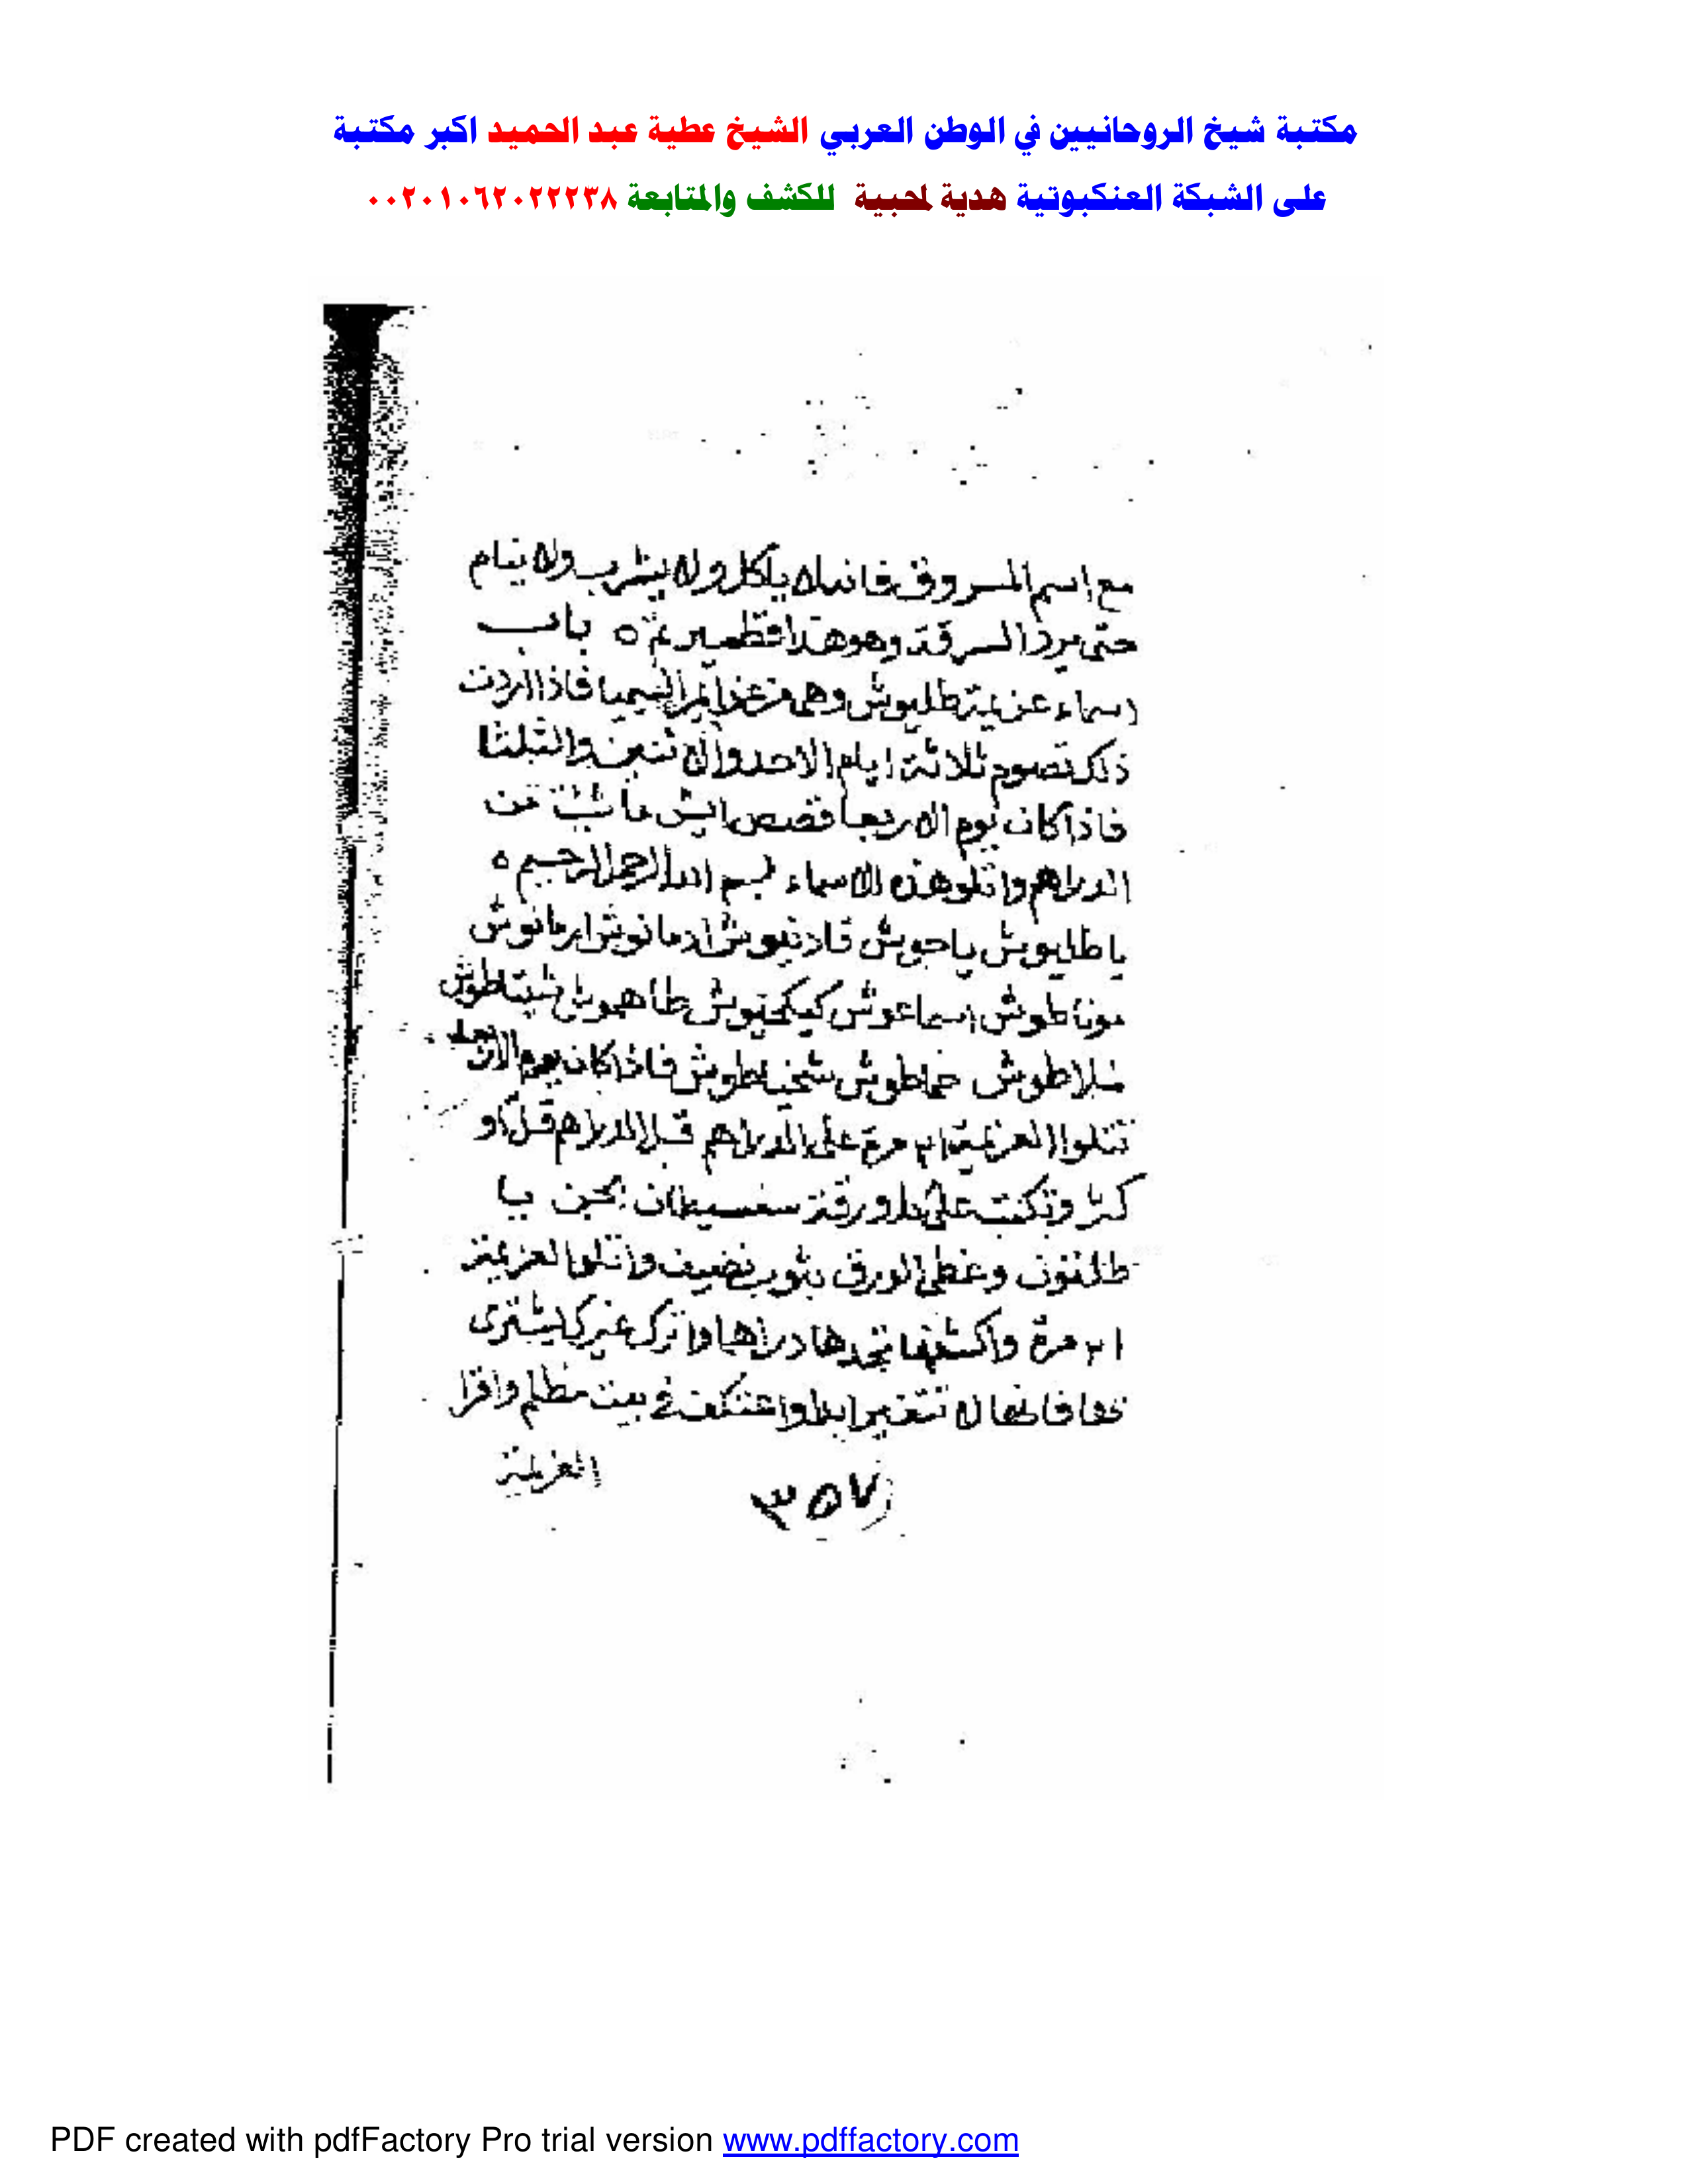 مكتبة شيخ الروحانيين في الوطن العربي الشيخ عطية عبد الحميد اكبر مكتبة
على الشبكة العنكبوتية هدية لمحبية للكشف والمتابعة ٠٠٢٠١٠٦٢٠٢٢٢٣٨
مع اسم المسروق فانه لا ياكل ولا يشرب ولا ينام
حتى يرد السرقة وهو هذا قطمير تم ه باب
اسماء عزيمة طليوش وهي من عزايم السيميا فاذا اردت
ذلك تصوم ثلاثة ايام الاحد والاثنين والثلثا
فاذا كان يوم الاربعا قصص ايش ما شيت من
الدراهم واتلو هذه الاسماء بسم الله الرحمن الرحيم ه
يا طليوش يا حيوش ارمانوش
اسماعوش
فاذا كان يوم الاربعا
تتلوا العزيمة ٢١ مرة على الدراهم قل الدراهم قل او
كثر وتكتب على ورقة
وغطي الورق بثوب نضيف واتلوا العزيمة
٢١ مرة واكشفها تجدها دراهما واترك غيرك يشتري
بها فانها لا تتغير ابدا واعتكف في بيت مظلم واقرا
العزيمة
٣٥٧
PDF created with pdfFactory Pro trial version www.pdffactory.com